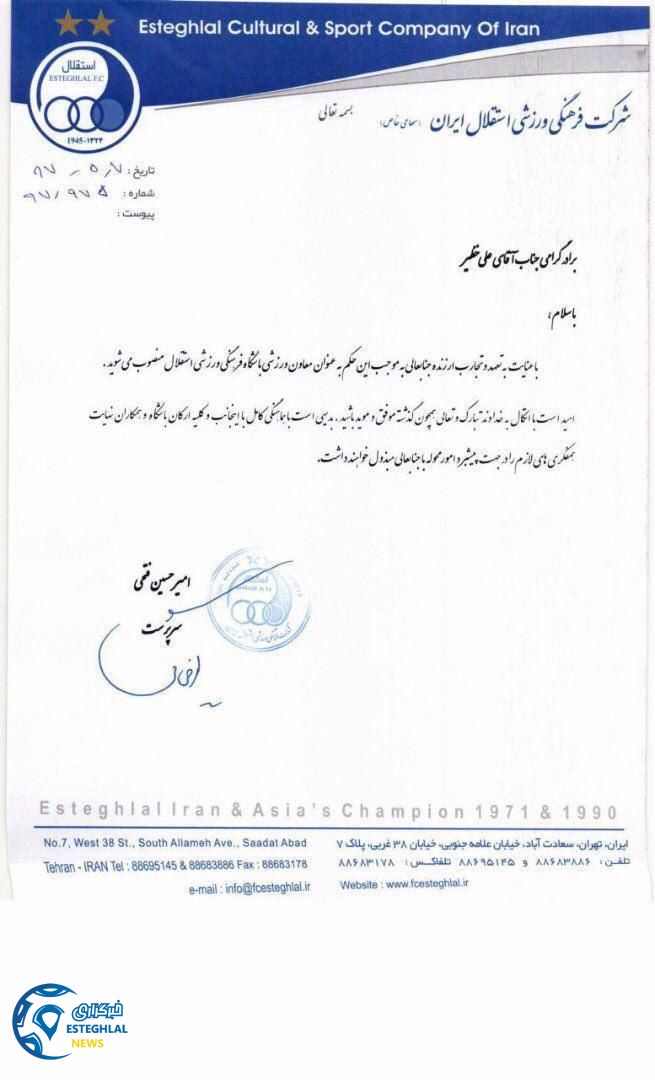 Esteghlal Cultural & Sport Company Of Iran
استقلال
ESTEGHLAL F.C
1945-۱۳۲۴
بسمه تعالی
شرکت فرهنگی ورزشی استقلال ایران (سهامی خاص)
تاریخ : ۹۷ - ۵ - ۷
شماره : ۹۷/۹۷۵
پیوست :
برادر گرامی جناب آقای علی خطیر
باسلام،
با عنایت به تعهد و تجارب ارزنده جنابعالی به موجب این حکم به عنوان معاون ورزشی باشگاه فرهنگی ورزشی استقلال منصوب می شوید .
امید است با اتکال به خداوند تبارک و تعالی همچون گذشته موفق و موید باشید . بدیهی است با هماهنگی کامل با اینجانب و کلیه ارکان باشگاه و همکاران نهایت
همفکری های لازم را در جهت پیشبرد امور محوله با جنابعالی مبذول خواهند داشت.
امیرحسین فتحی
سرپرست
Esteghlal Iran & Asia's Champion 1971 & 1990
No.7, West 38 St., South Allameh Ave., Saadat Abad
Tehran - IRAN Tel : 88695145 & 88683886 Fax : 88683178
e-mail : info@fcesteghlal.ir
ایران، تهران، سعادت آباد، خیابان علامه جنوبی، خیابان ۳۸ غربی، پلاک ۷
تلفن : ۸۸۶۸۳۸۸۶ و ۸۸۶۹۵۱۴۵ تلفاکس : ۸۸۶۸۳۱۷۸
Website : www.fcesteghlal.ir
خبرگزاری
ESTEGHLAL
NEWS